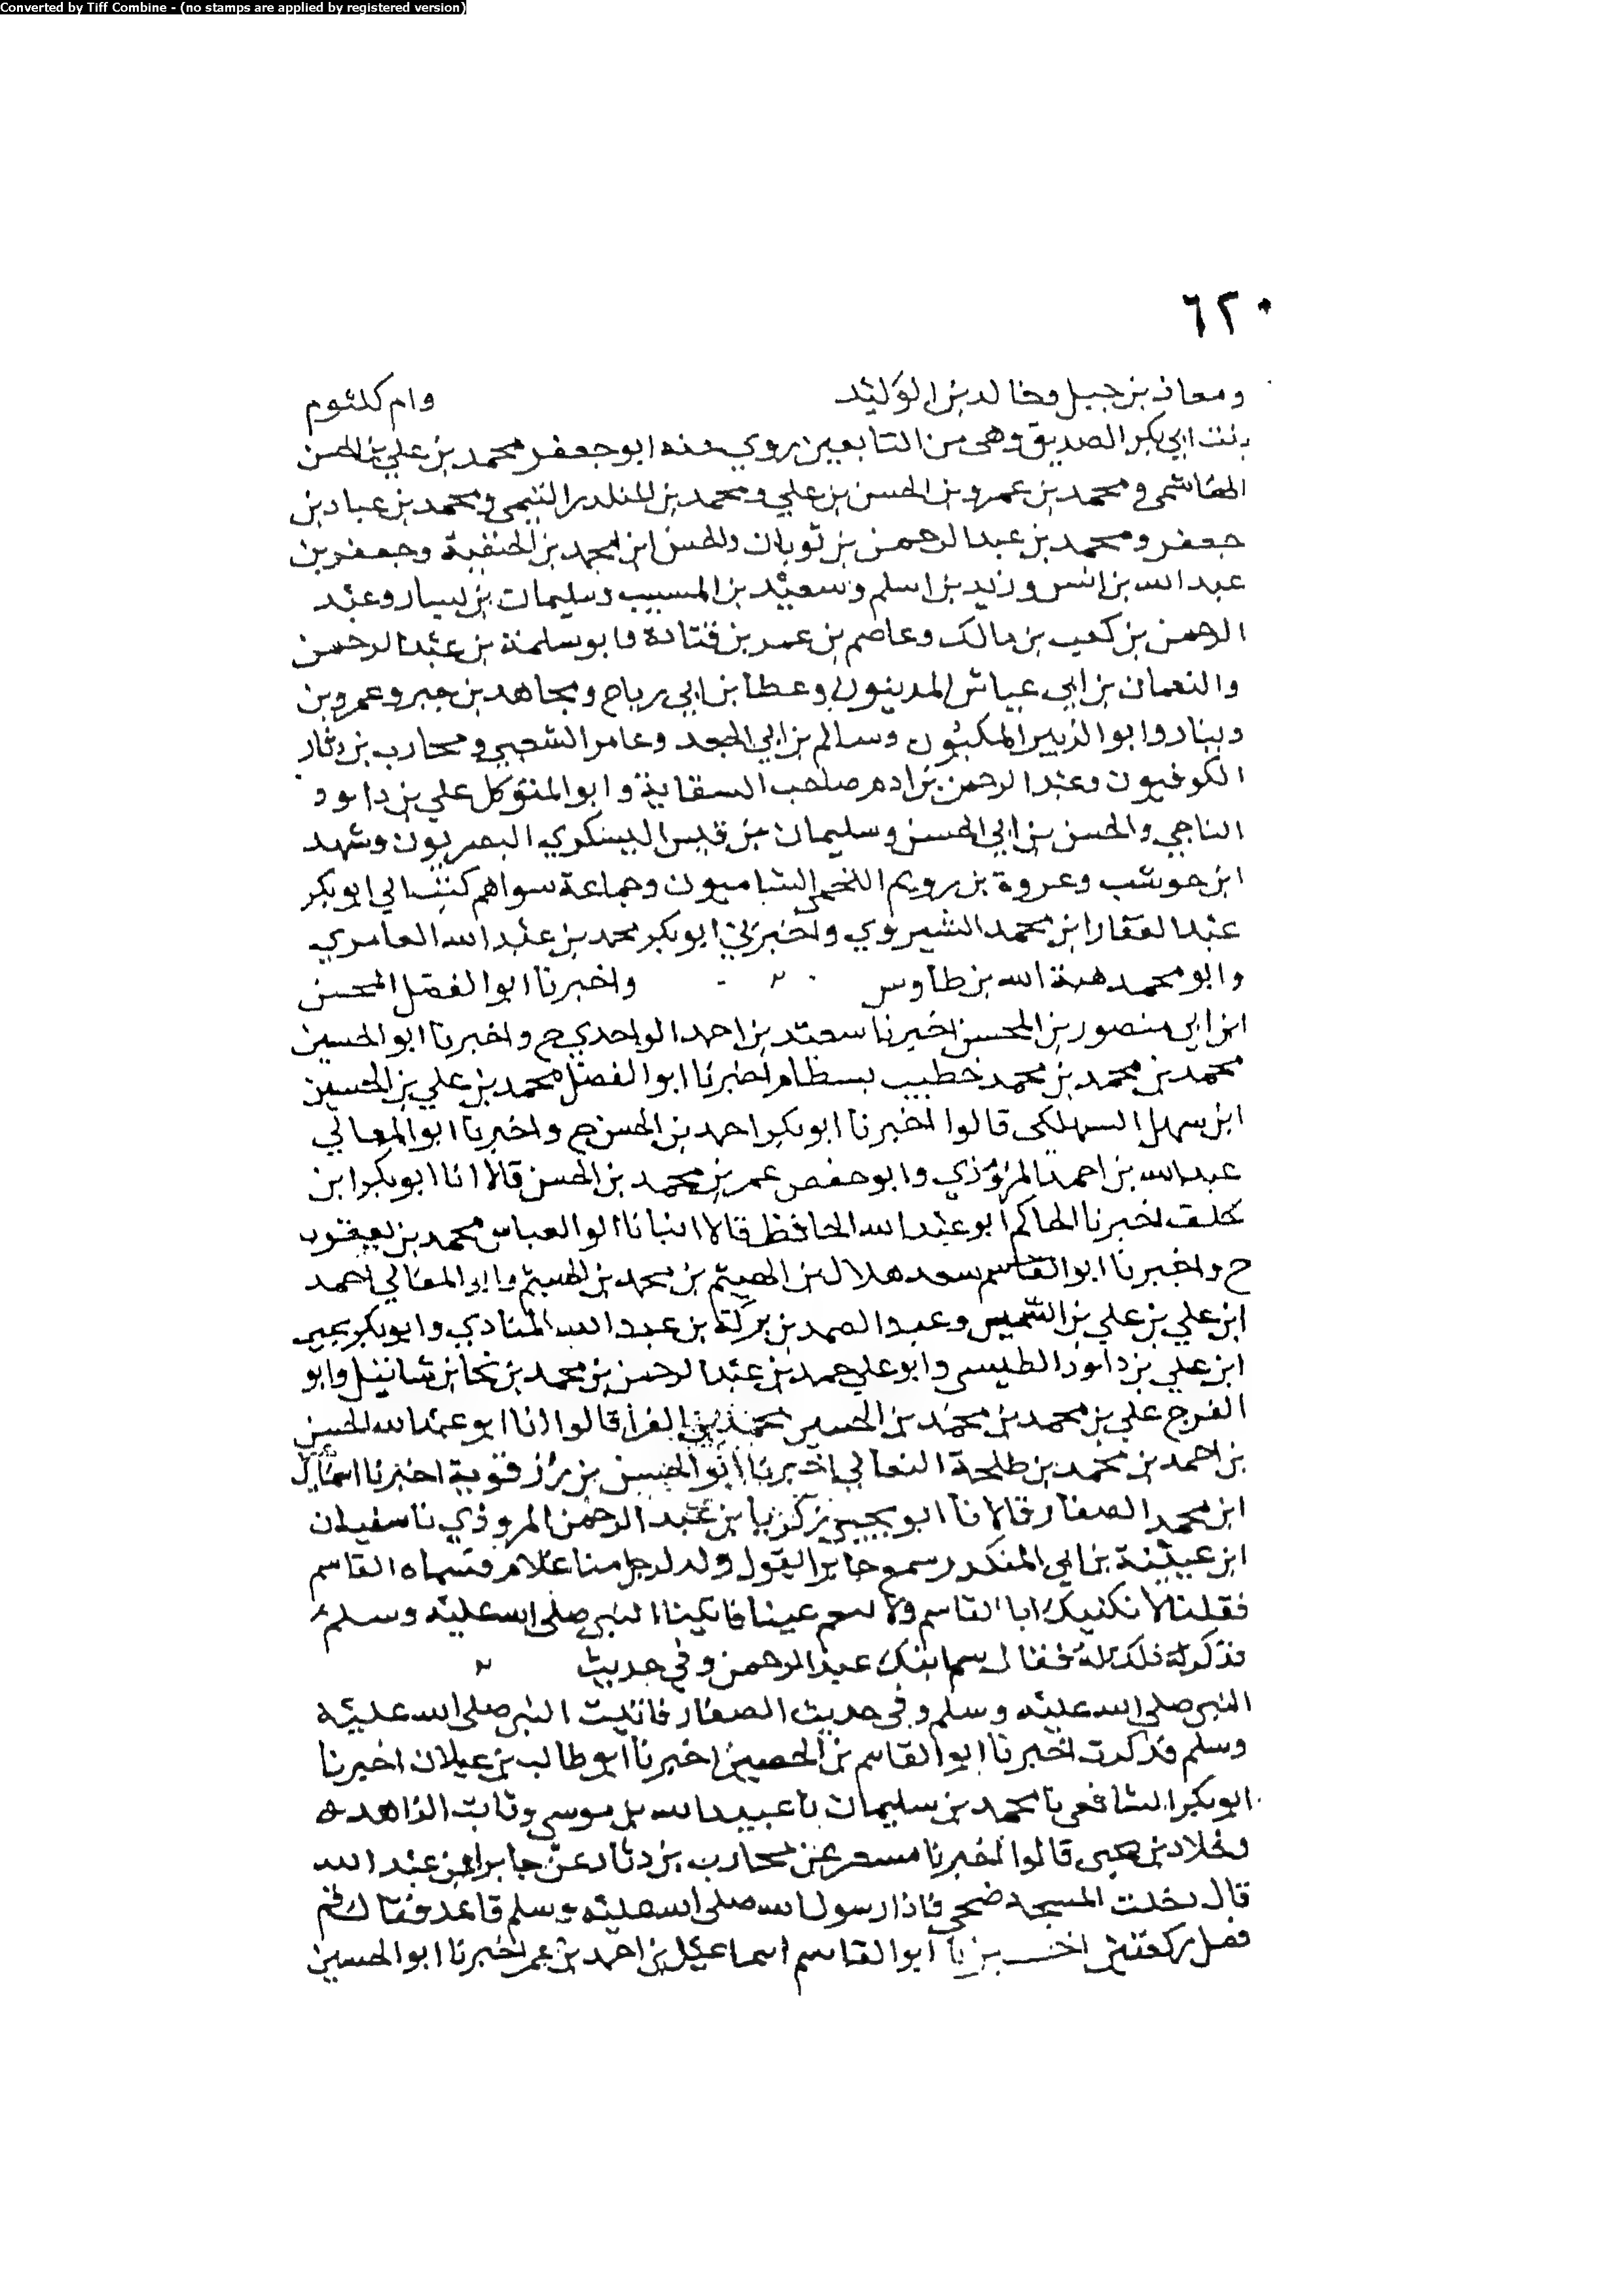 Converted by Tiff Combine - (no stamps are applied by registered version)
٦٢٠
ومعاذ بن جبل وخالد بن الوليد وام كلثوم
بنت ابي بكر الصديق وهي من التابعين روي عنه ابو جعفر محمد بن علي بن الحسن
الهاشمي و محمد بن عمرو بن الحسن بن علي و محمد بن المنكدر التيمي و محمد بن عباد بن
جعفر و محمد بن عبد الرحمن بن ثوبان والحسن ابن محمد بن الحنفية وجعفر بن
عبد الله بن انس وزيد بن اسلم وسعيد بن المسيب وسليمان بن يسار وعبد
الرحمن بن كعب بن مالك وعاصم بن عمر بن قتادة وابو سلمة بن عبد الرحمن
والنعمان بن ابي عياش المدينون وعطا بن ابي رباح ومجاهد بن جبر وعمرو بن
دينار وابو الزبير المكيون وسالم بن ابي الجعد وعامر الشعبي ومحارب بن دثار
الكوفيون وعبد الرحمن بن ادم صاحب السقاية وابو المتوكل علي بن داود
الناجي والحسن بن ابي الحسن وسليمان بن قيس اليشكري البصريون وشهد
ابن حوشب وعروة بن رويم اللخمي الشاميون وجماعة سواهم كتب الي ابو بكر
عبد الغفار ابن محمد الشيروي واخبرني ابو بكر محمد بن عبد الله العامري
وابو محمد هبة الله بن طاوس واخبرنا ابو الفضل المحسن
ابن ابي منصور بن المحسن اخبرنا سعيد بن احمد الواحدي ح واخبرنا ابو الحسين
محمد بن محمد بن محمد خطيب بسطام اخبرنا ابو الفضل محمد بن علي بن الحسين
ابن سهل السهلكي قالوا اخبرنا ابو بكر احمد بن الحسن ح واخبرنا ابو المعالي
عبد الله بن احمد المروزي وابو حفص عمر بن محمد بن الحسن قالا انا ابو بكر ابن
خلف اخبرنا الحاكم ابو عبد الله الحافظ قالا انبانا ابو العباس محمد بن يعقوب
ح واخبرنا ابو القاسم سعد هلال بن الهيثم بن محمد بن الهيثم وابو المعالي احمد
ابن علي بن علي بن السميس وعبد الصمد بن بركة بن عبد الله المنادي وابو بكر يحيى
ابن علي بن داود الطيسي وابو علي حمد بن عبد الرحمن بن محمد بن نجا بن شاتيل وابو
الفرج علي بن محمد بن محمد بن الحسين محمد بن الفرا قالوا انا ابو عبد الله الحسن
بن احمد بن محمد بن طلحة النعالي اخبرنا ابو الحسن بن رزقوية اخبرنا اسماعيل
ابن محمد الصفار قالا نا ابو يحيى زكريا بن عبد الرحمن المروذي نا سفيان
ابن عيينة بن ابي المنكدر سمع جابرا يقول ولد لرجل منا غلام فسماه القاسم
فقلنا لا نكنيك ابا القاسم ولا عينا فاتينا النبي صلى الله عليه وسلم
فذكرت ذلك له فقال سم ابنك عبد الرحمن وفي حديث
النبي صلى الله عليه وسلم وفي حديث الصفار فاتيت النبي صلى الله عليه
وسلم فذكرت اخبرنا ابو القاسم بن الحصين اخبرنا ابو طالب بن غيلان اخبرنا
ابو بكر الشافعي نا محمد بن سليمان نا عبيد الله بن موسى وثابت الزاهد
وخلاد بن يحيى قالوا اخبرنا مسعر عن محارب بن دثار عن جابر ابن عبد الله
قال دخلت المسجد ضحى فاذا رسول الله صلى الله عليه وسلم قاعد فقال قم
فصل ركعتين اخبرنا ابو القاسم اسماعيل بن احمد بن عمر اخبرنا ابو الحسين